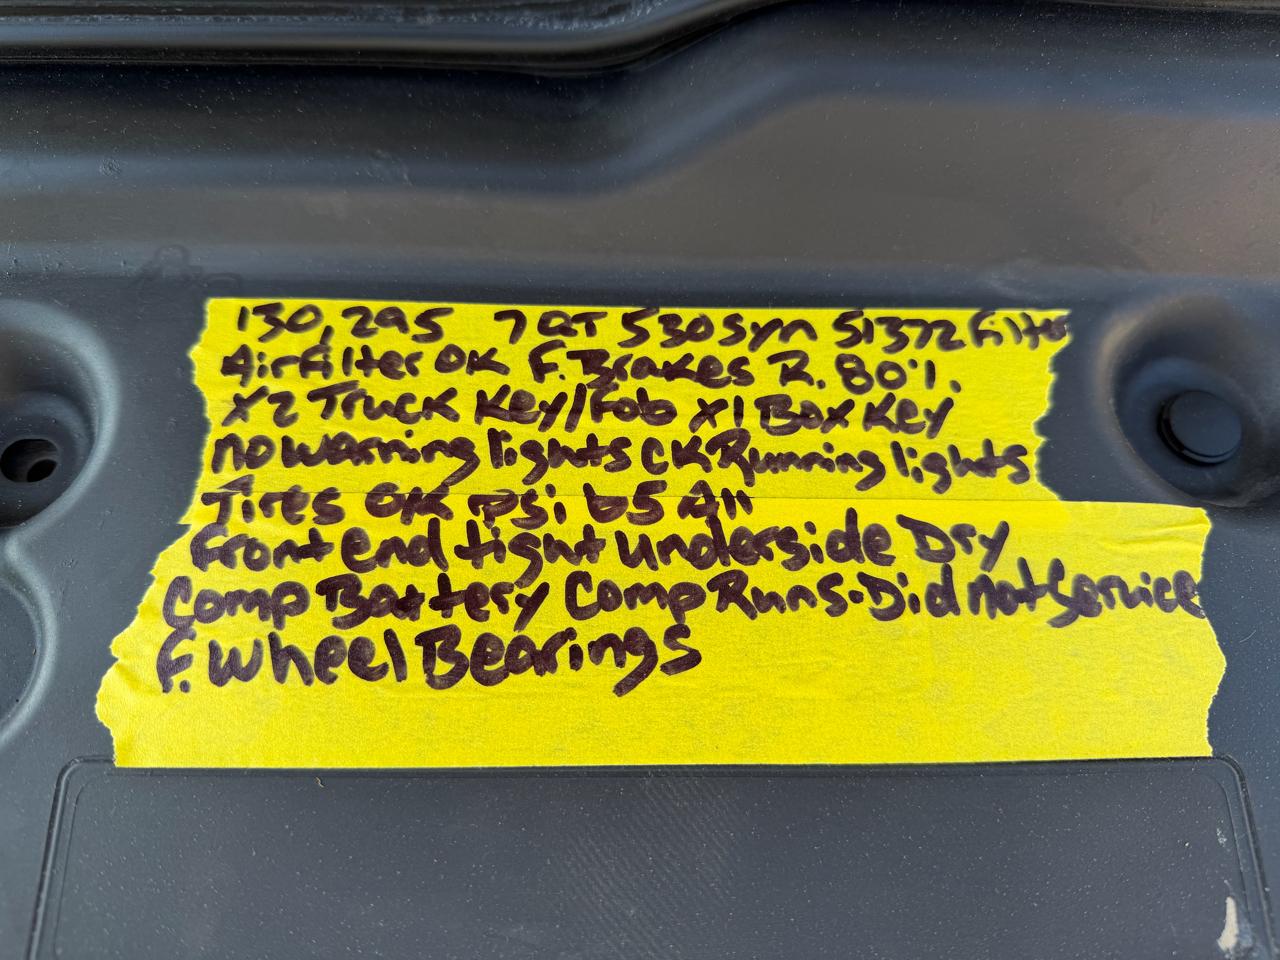 130,295 7QT 530 syn 51372 Filter
Air Filter OK F. Brakes R. 80%.
x2 Truck Key/Fob x1 Box Key
no warning lights CK Running lights
Tires OK psi 65 All
Front end tight underside Dry
Comp Battery Comp Runs. Did not Service
F. Wheel Bearings